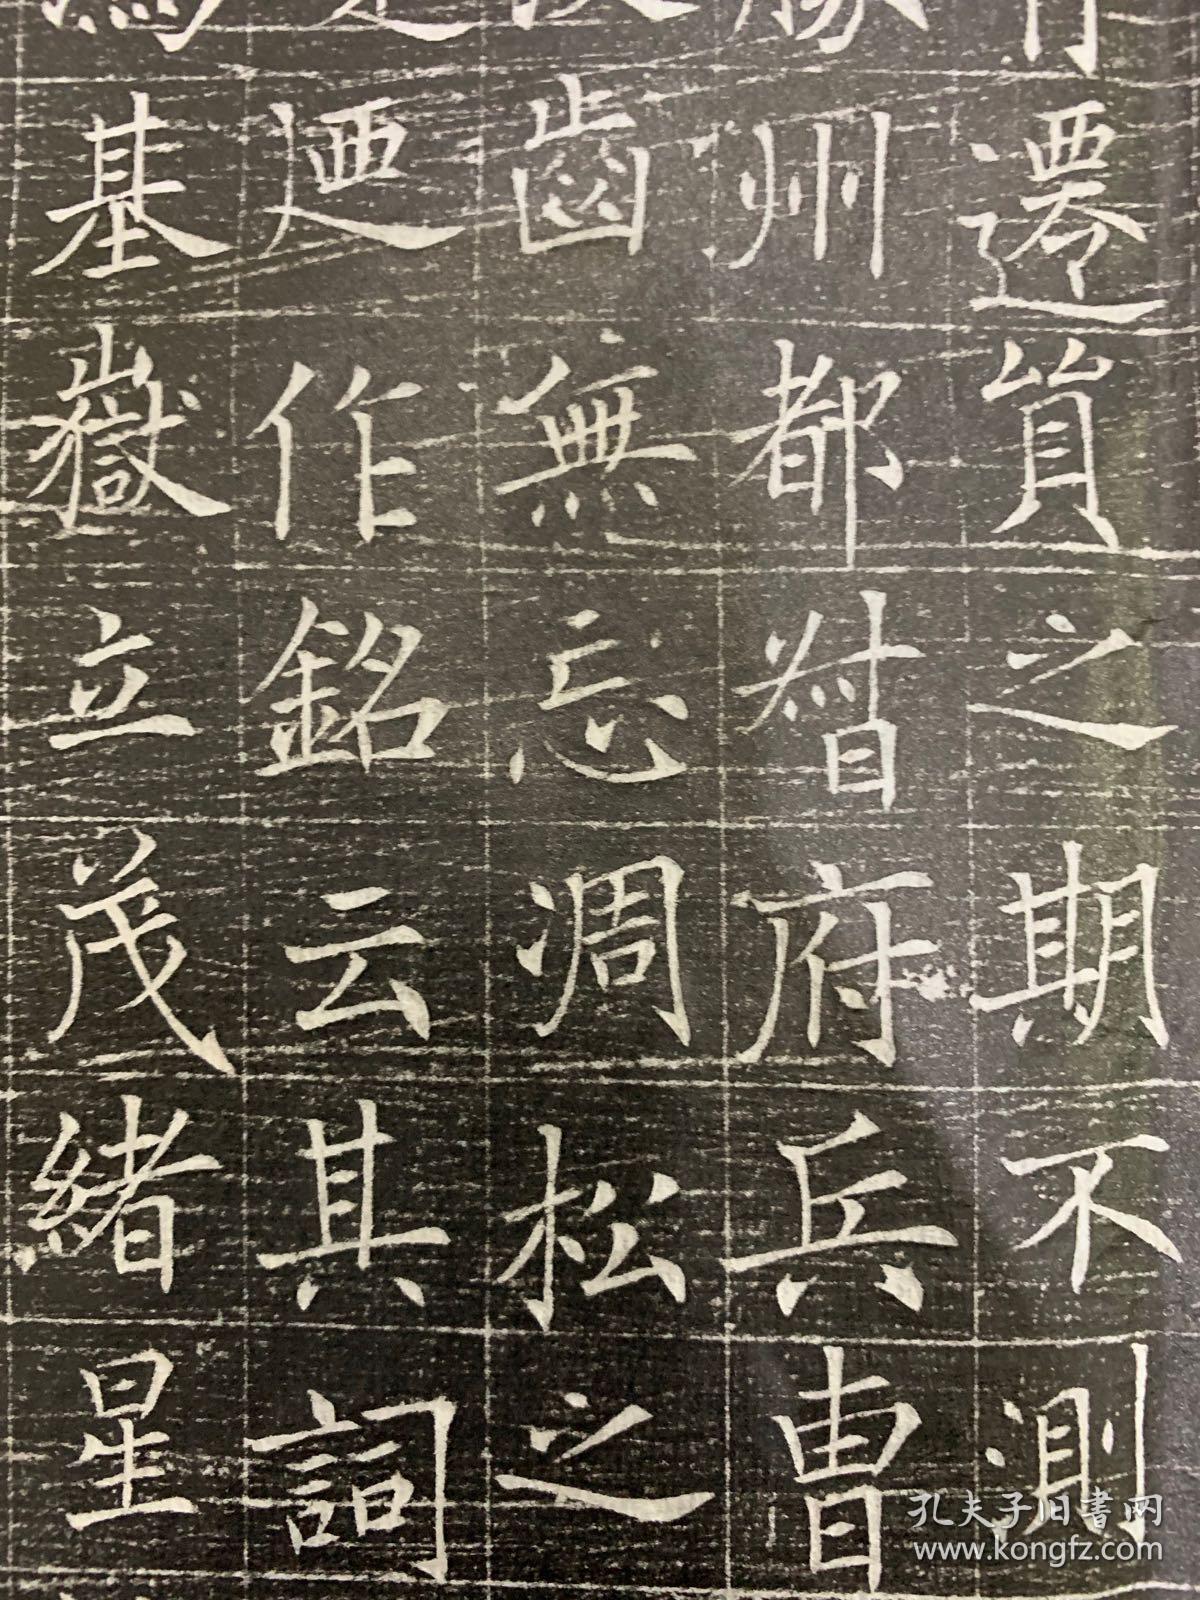 遷貿之期不測
州都督府兵曹
齒無忘凋松之
迺作銘云其詞
基嶽立茂緒星
孔夫子旧書网
www.kongfz.com